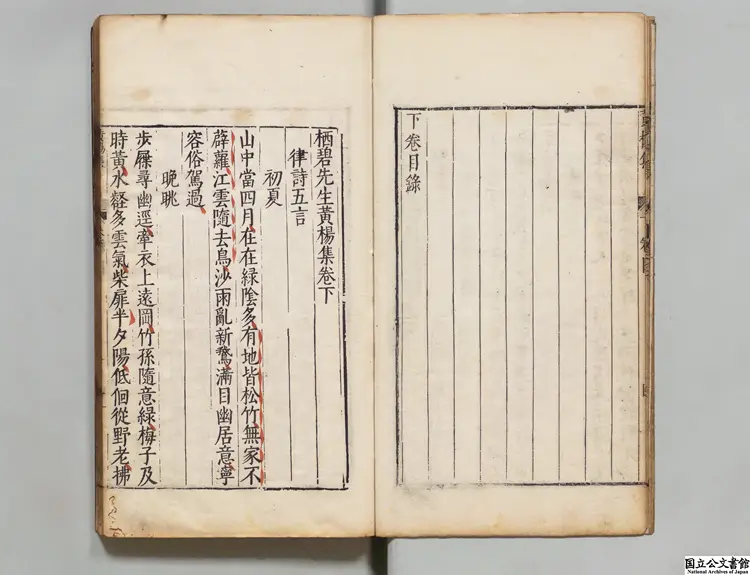 下卷目錄
栖碧先生黃楊集卷下
律詩五言
初夏
山中當四月在在綠陰多有地皆松竹無家不
薜蘿江雲隨去鳥沙雨亂新鵞滿目幽居意寧
容俗駕過
晚眺
步屧尋幽逕牽衣上遠岡竹孫隨意綠梅子及
時黃水壑多雲氣柴扉半夕陽低徊從野老拂
国立公文書館
National Archives of Japan